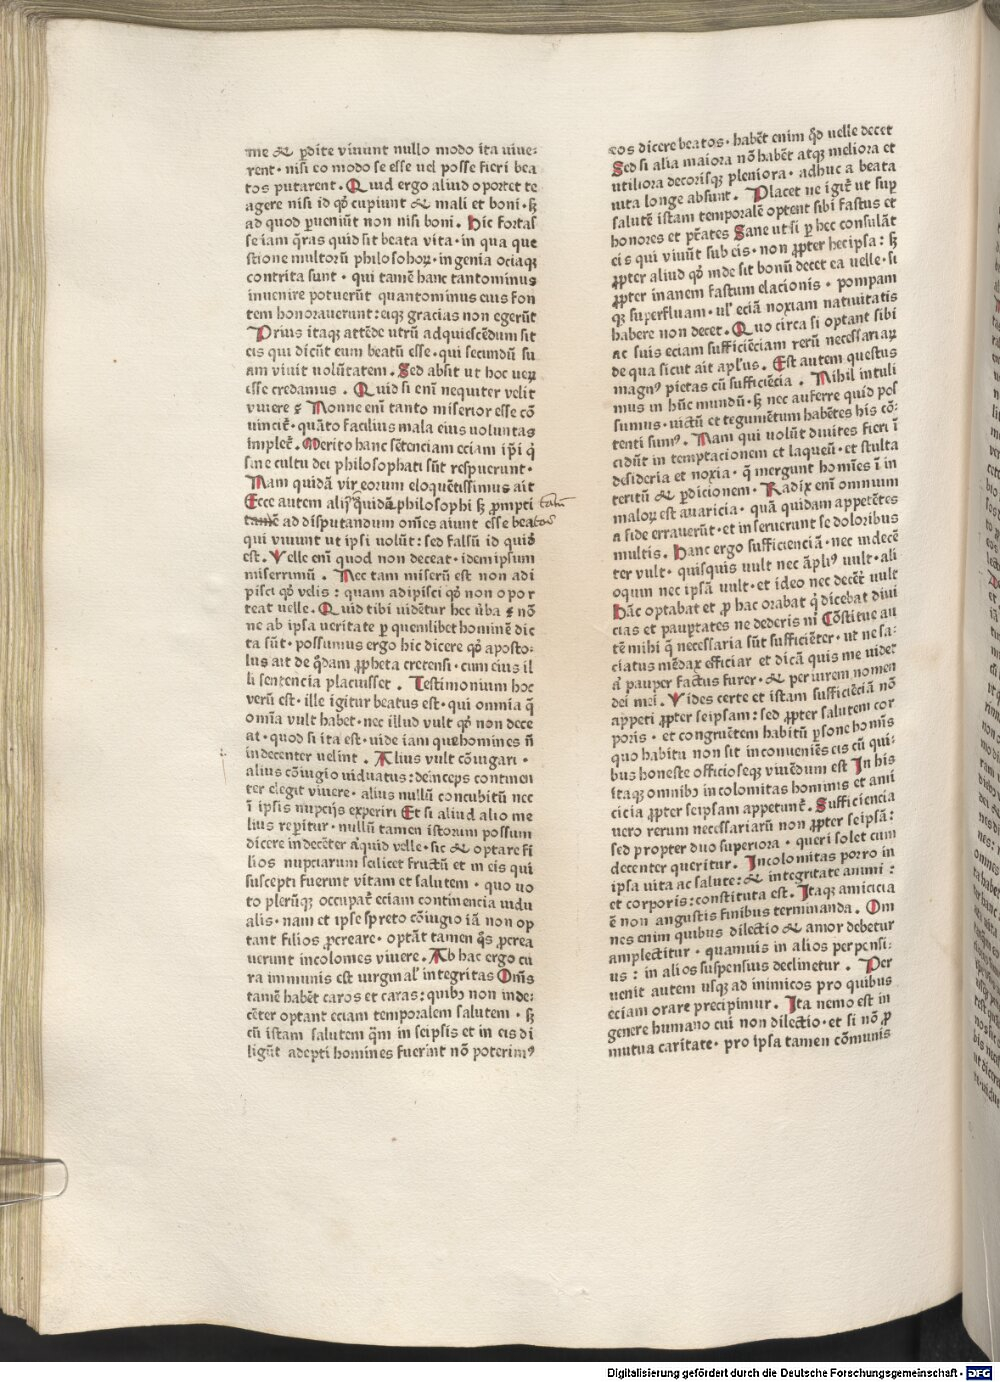 me & ꝑdite viuunt nullo modo ita viue⸗
rent· nisi eo modo se esse uel posse fieri bea
tos putarent. Quid ergo aliud oportet te
agere nisi id qđ cupiunt & mali et boni· sꝫ
ad quod ꝑueniūt non nisi boni. Hic fortas
se iam q̄ras quid sit beata vita· in qua que
stione multorū philosohoꝝ· ingenia ociaqꝫ
contrita sunt· qui tamē hanc tantominus
inuenire potuerūt quantominus eius fon
tem honorauerunt: eiqꝫ gracias non egerūt
Prius itaqꝫ attēde utrū adquiescēdum sit
eis qui dicūt eum beatū esse· qui secundū su
am viuit uolūtatem. Sed absit ut hoc ueꝝ
esse credamus. Quid si enī nequiter velit
viuere? Nonne enī tanto miserior esse cō
vincit᷑· quāto facilius mala eius uoluntas
implet᷑. Merito hanc sētenciam eciam ip̄i q̇
sine cultu dei philosophati sūt respuerunt·
Nam quidā vir eorum eloquētissimus ait
Ecce autem alij quidā philosophi sꝫ ꝓmpti
tamē ad disputandum om̄es aiunt esse beatos
qui viuunt ut ipsi uolūt: sed falsū id quid
est. Velle enī quod non deceat· idem ipsum
miserrimū. Nec tam miserū est non adi
pisci qđ velis: quam adipisci qđ non opor
teat uelle. Quid tibi uidētur hec v̄ba? nō
ne ab ipsa ueritate ꝑ quemlibet hominē dic
ta sūt· possumus ergo hic dicere qđ aposto⸗
lus ait de q̄dam ꝓpheta cretensi· cum eius il
li sentencia placuisset. Testimonium hoc
verū est· ille igitur beatus est· qui omnia q̄
omīa vult habet· nec illud vult qđ non dece
at· quod si ita est· uide iam que homines n̄
indecenter uelint. Alius vult cōiugari·
alius cōiugio uiduatus: deinceps continen
ter elegit viuere· alius nullū concubitū nec
ī ipsis nupcijs experiri Et si aliud alio me
lius reꝑitur· nullū tamen istorum possum
dicere indecēter aliquid velle· sic & optare fi
lios nupciarum scilicet fructū et in eis qui
suscepti fuerint vitam et salutem· quo uo
to plerūqꝫ occupat᷑ eciam continencia uidu
alis· nam et ipse spreto cōiugio iā non op
tant filios ꝓcreare· optāt tamen q̄s ꝓcrea
uerunt incolomes viuere. Ab hac ergo cu
ra immunis est uirginal' integritas Om̄s
tamē habēt caros et caras: quibꝫ non inde⸗
cēter optant eciam temporalem salutem· sꝫ
cū istam salutem q̄m in seipsis et in eis di
ligūt adepti homines fuerint nō poterimꝰ
eos dicere beatos· habēt enim qđ uelle decet
Sed si alia maiora nō habēt atqꝫ meliora et
utiliora decorisqꝫ pleniora· adhuc a beata
uita longe absunt. Placet ne igit᷑ ut sup
salutē istam temporalē optent sibi fastus et
honores et p̄tates Sane ut si ꝑ hec consulāt
eis qui viuūt sub eis· non ꝓpter hec ipsa: sꝫ
ꝓpter aliud qđ inde sit bonū decet ea uelle· si
ꝓpter inanem fastum elacionis· pompam
qꝫ superfluam· ul' eciā noxiam natiuitatis
habere non decet. Quo circa si optant sibi
ac suis eciam sufficiēciam rerū necessariaꝝ
de qua sicut ait apl'us. Est autem questus
magnꝰ pietas cū sufficiēcia. Nihil intuli
mus in hūc mundū· sꝫ nec auferre quid pos
sumus· uictū et tegumētum habētes his cō⸗
tenti sumꝰ. Nam qui uolūt diuites fieri ī
cidūt in temptacionem et laqueū· et stulta
desideria et noxia· q̄ mergunt homīes ī in
teritū & ꝑdicionem. Radix enī omnium
maloꝝ est auaricia· quā quidam appetētes
a fide errauerūt· et inseruerunt se doloribus
multis. Hanc ergo sufficienciā· nec indecē
ter vult· quisquis uult nec āpliꝰ uult· ali
oquin nec ipsā uult· et ideo nec decēt᷑ uult
Hāc optabat et ꝓ hac orabat q̇ dicebat diui
cias et paupertates ne dederis m̄ Cōstitue au
tē mihi q̄ necessaria sūt sufficiēter· ut ne sa⸗
ciatus mēdax efficiar et dicā quis me uidet
aut pauper factus furer· & periurem nomen
dei mei. Vides certe et istam sufficiēciā nō
appeti ꝓpter seipsam: sed ꝓpter salutem cor
poris· et congruētem habitū ꝑsone homīs
quo habitu non sit inconueniēs eis cū qui⸗
bus honeste officioseqꝫ viuēdum est In his
itaqꝫ omnibꝫ incolomitas hominis et ami
cicia ꝓpter seipsam appetunt᷑. Sufficiencia
uero rerum necessariarū non ꝓpter seipsā:
sed propter duo superiora· queri solet cum
decenter queritur. Incolomitas porro in
ipsa uita ac salute: & integritate animi:
et corporis: constituta est. Itaqꝫ amicicia
ē non angustis finibus terminanda. Om
nes enim quibus dilectio & amor debetur
amplectitur· quamuis in alios perpensi⸗
us: in alios suspensius declinetur. Per
uenit autem usqꝫ ad inimicos pro quibus
eciam orare precipimur. Ita nemo est in
genere humano cui non dilectio· et si nō ꝓ
mutua caritate· pro ipsa tamen cōmunis
Digitalisierung gefördert durch die Deutsche Forschungsgemeinschaft - DFG